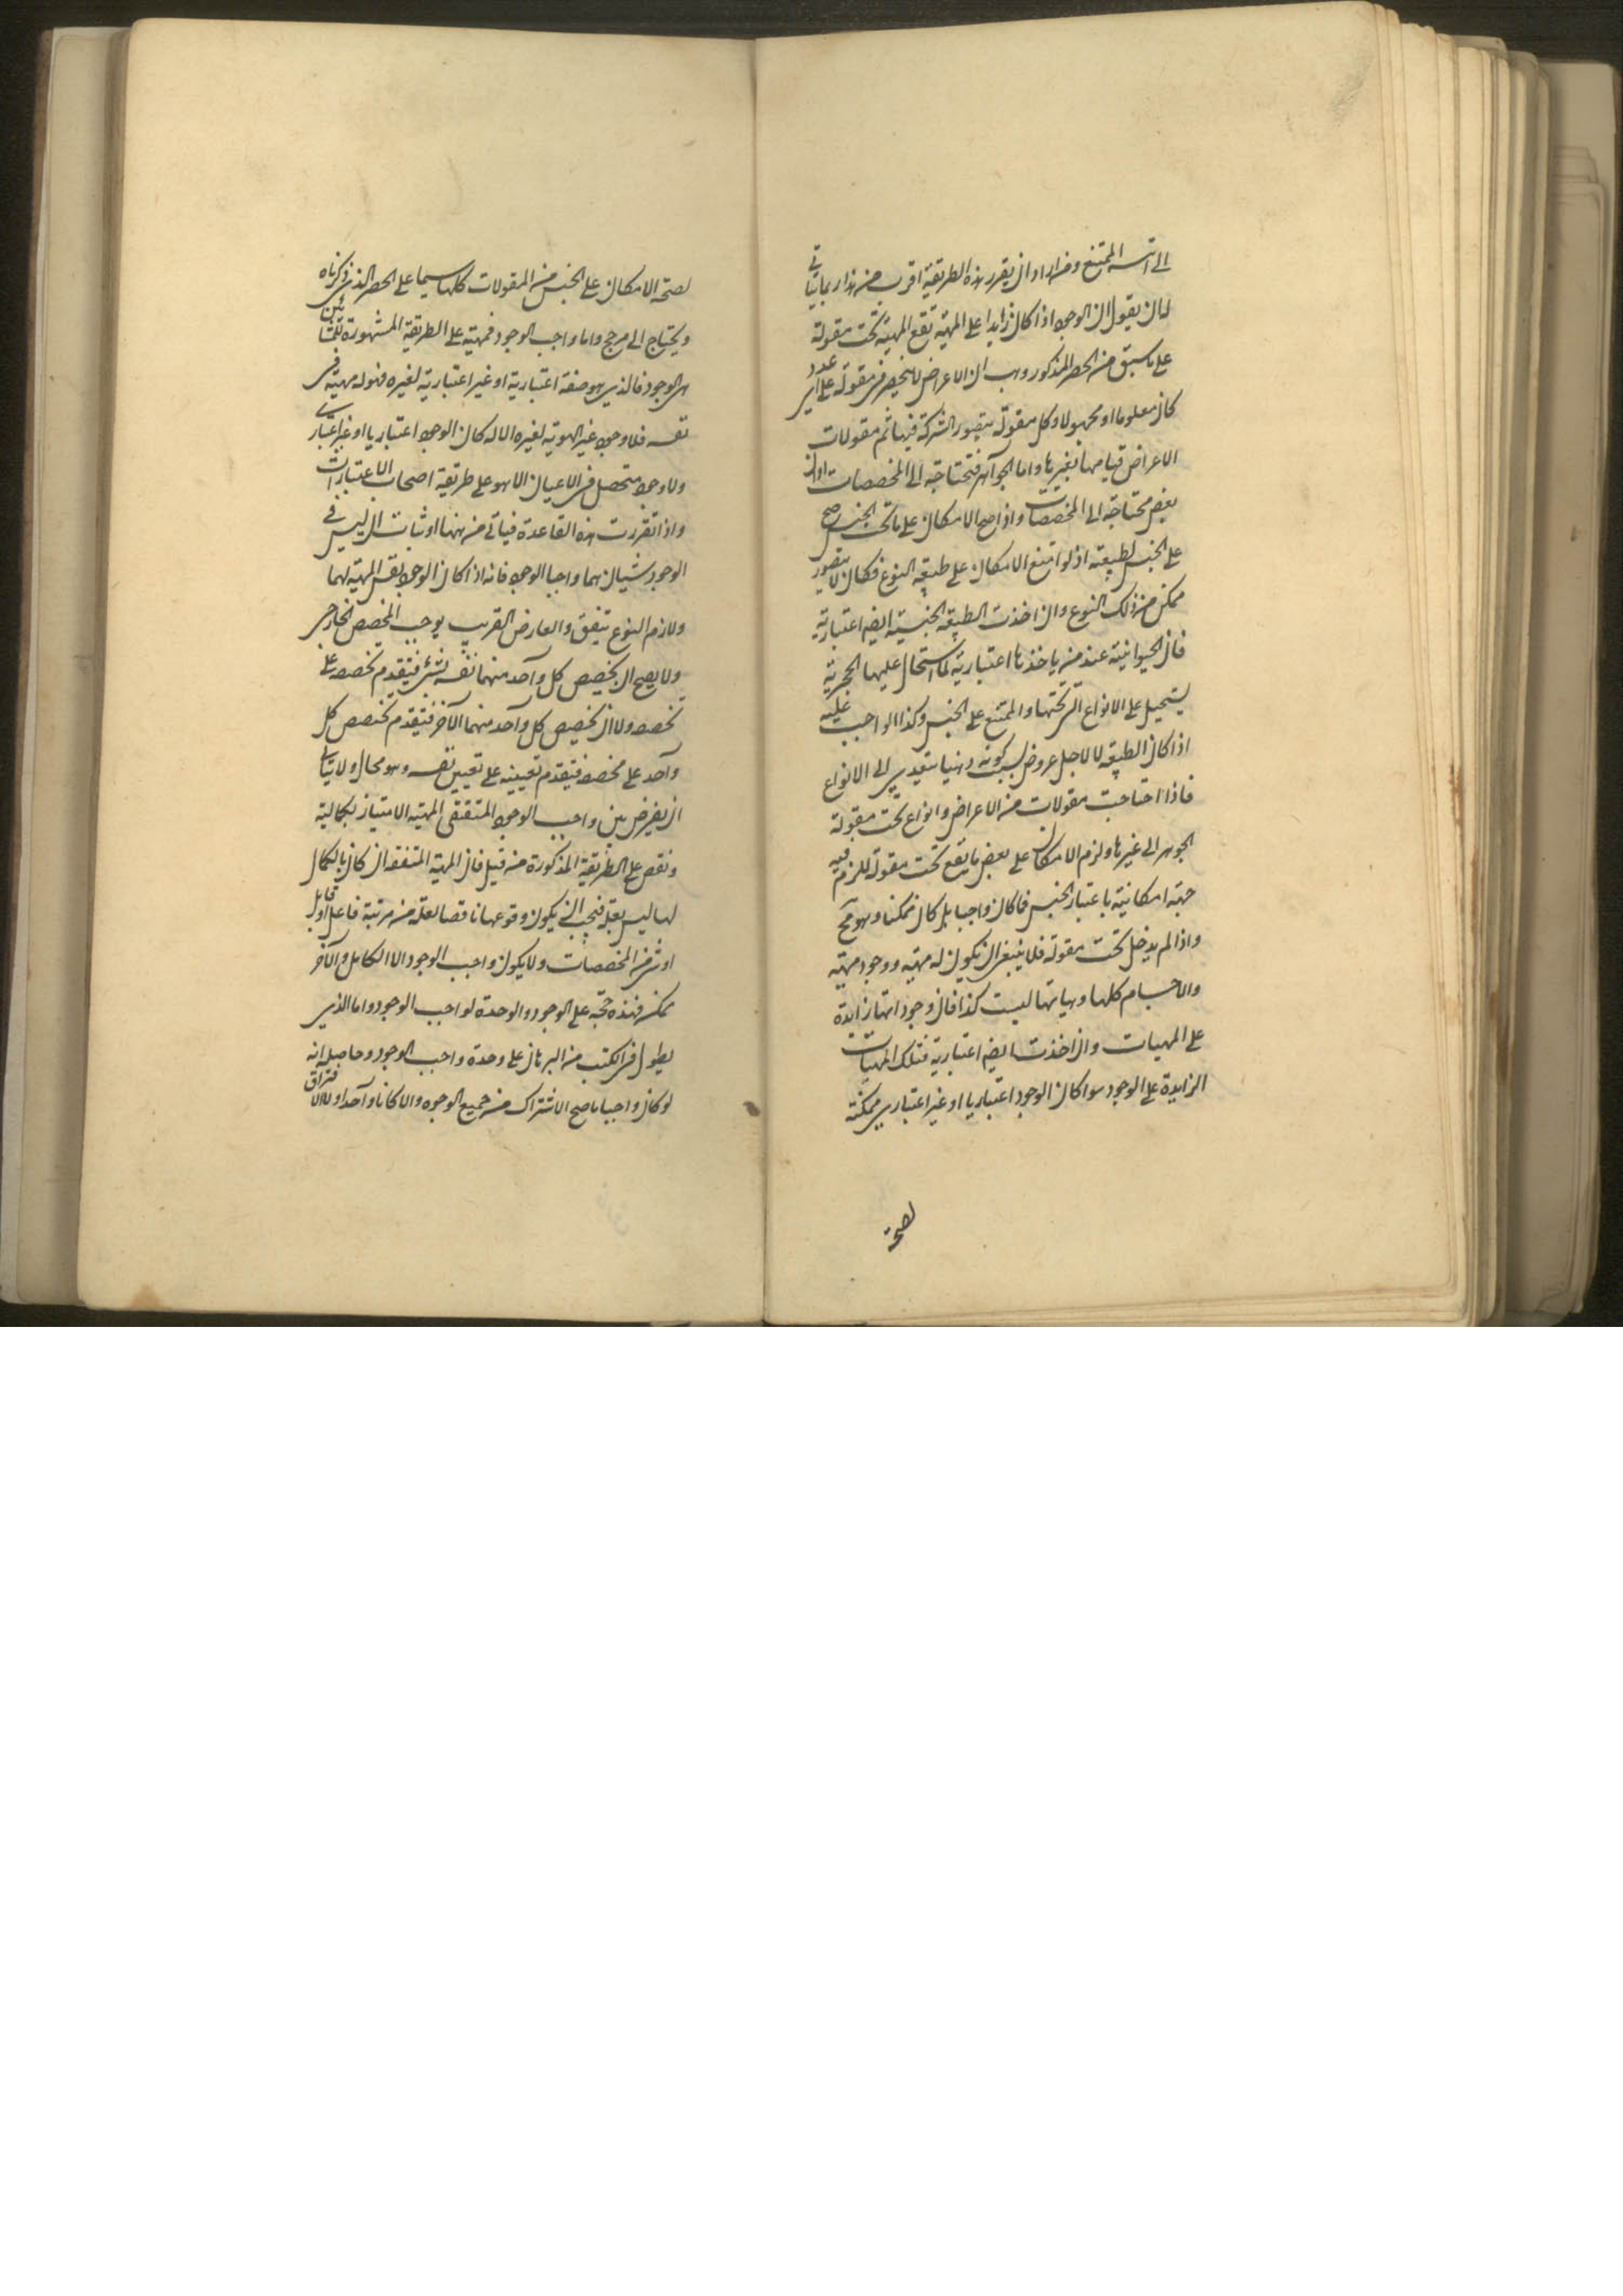 الى قسمه الممتنع ومن اراد ان يقرر هذه الطريقة اقرب من هذا ربما يتاتى
له ان يقول ان الوجود اذا كان زايدا على المهية تقع المهية تحت مقولة
على ما سبق من الحصر المذكور وهب ان الاعراض لا ينحصر فى مقولة على اى عدد
كان معلوما او مجهولا وكل مقولة يتصور الشركة فيها ثم مقولات
الاعراض قيامها بغيرها واما الجواهر فتحتاجة الى المخصصات او ان
بعض محتاجة الى المخصصات واذا صح الامكان على ما تحت الجنس صح
على الجنس لطبيعته اذ لو امتنع الامكان على طبيعة النوع فكان لا يتصور
ممكن من ذلك النوع وان اخذت الطبيعة الجنسية ايضا اعتبارية
فان الحيوانية عند من ياخذها اعتبارية لما استحال عليها الحجرية
يستحيل على الانواع التى تحتها والممتنع على الجنس وكذا الواجب عليه
اذا كان الطبيعة لا لاجل عروض بسبب كونه ذهنيا يتعدى الى الانواع
فاذا احتاجت مقولات من الاعراض وانواع تحت مقولة
الجوهر الى غيرها ولزم الامكان على بعض ما يقع تحت مقولة للزم فيه
جهة امكانية باعتبار الجنس فما كان واجبا بل كان ممكنا وهو مح
واذا لم يدخل تحت مقولة فلا ينبغى ان يكون له مهية ووجود مهية
والاجسام كلها وهياتها ليست كذا فان وجوداتها زايدة
على المهيات وان اخذت ايضا اعتبارية فتلك المهيات
الزايدة على الوجود سوا كان الوجود اعتباريا او غير اعتبارى ممكنة
لصحة
لصحة الامكان على الجنس من المقولات كلها سيما على الحصر الذى ذكرناه
ويحتاج الى مرجح واما واجب الوجود فمهيته على الطريقة المشهورة للمشائين
هى الوجود فالذى هو صفة اعتبارية او غير اعتبارية لغيره فهو له مهية فى
نفسه فلا وجود غير الهوية لغيره الا له كان الوجود اعتباريا او غير اعتبارى
ولا وجود متحصل فى الاعيان الا هو على طريقة اصحاب الاعتبارات
واذا تقررت هذه القاعدة فيتاتى من ههنا اثبات ان ليس فى
الوجود شيان هما واجبا الوجود فانه اذا كان الوجود نفس المهية لهما
ولازم النوع يتفق والعارض القريب يوجب المخصص الخارجى
ولا يصح ان يخصص كل واحد منهما نفسه بشئ فيتقدم تخصصه على
تخصصه ولا ان يخصص كل واحد منهما الآخر فيتقدم تخصص كل
واحد على مخصصه فيتقدم تعيينه على تعيين نفسه وهو محال ولا يتاتى
ان يفرض بين واجب الوجود المتفقى المهية الامتياز بكمالية
ونقص على الطريقة المذكورة من قبل فان المهية المتفقة ان كان بالكمال
لها ليس بعلة فيجب ان يكون وقوعها ناقصا لعلة من مرتبة فاعل او قابل
او شئ من المخصصات ولا يكون واجب الوجود الا الكامل والآخر
ممكن فهذه حجة على الوجود والوحدة لواجب الوجود واما الذى
يطول فى الكتب من البرهان على وحدة واجب الوجود وحاصله انه
لو كان واجبا ما صح الاشتراك من جميع الوجوه والا كانا واحدا ولا الافتراق